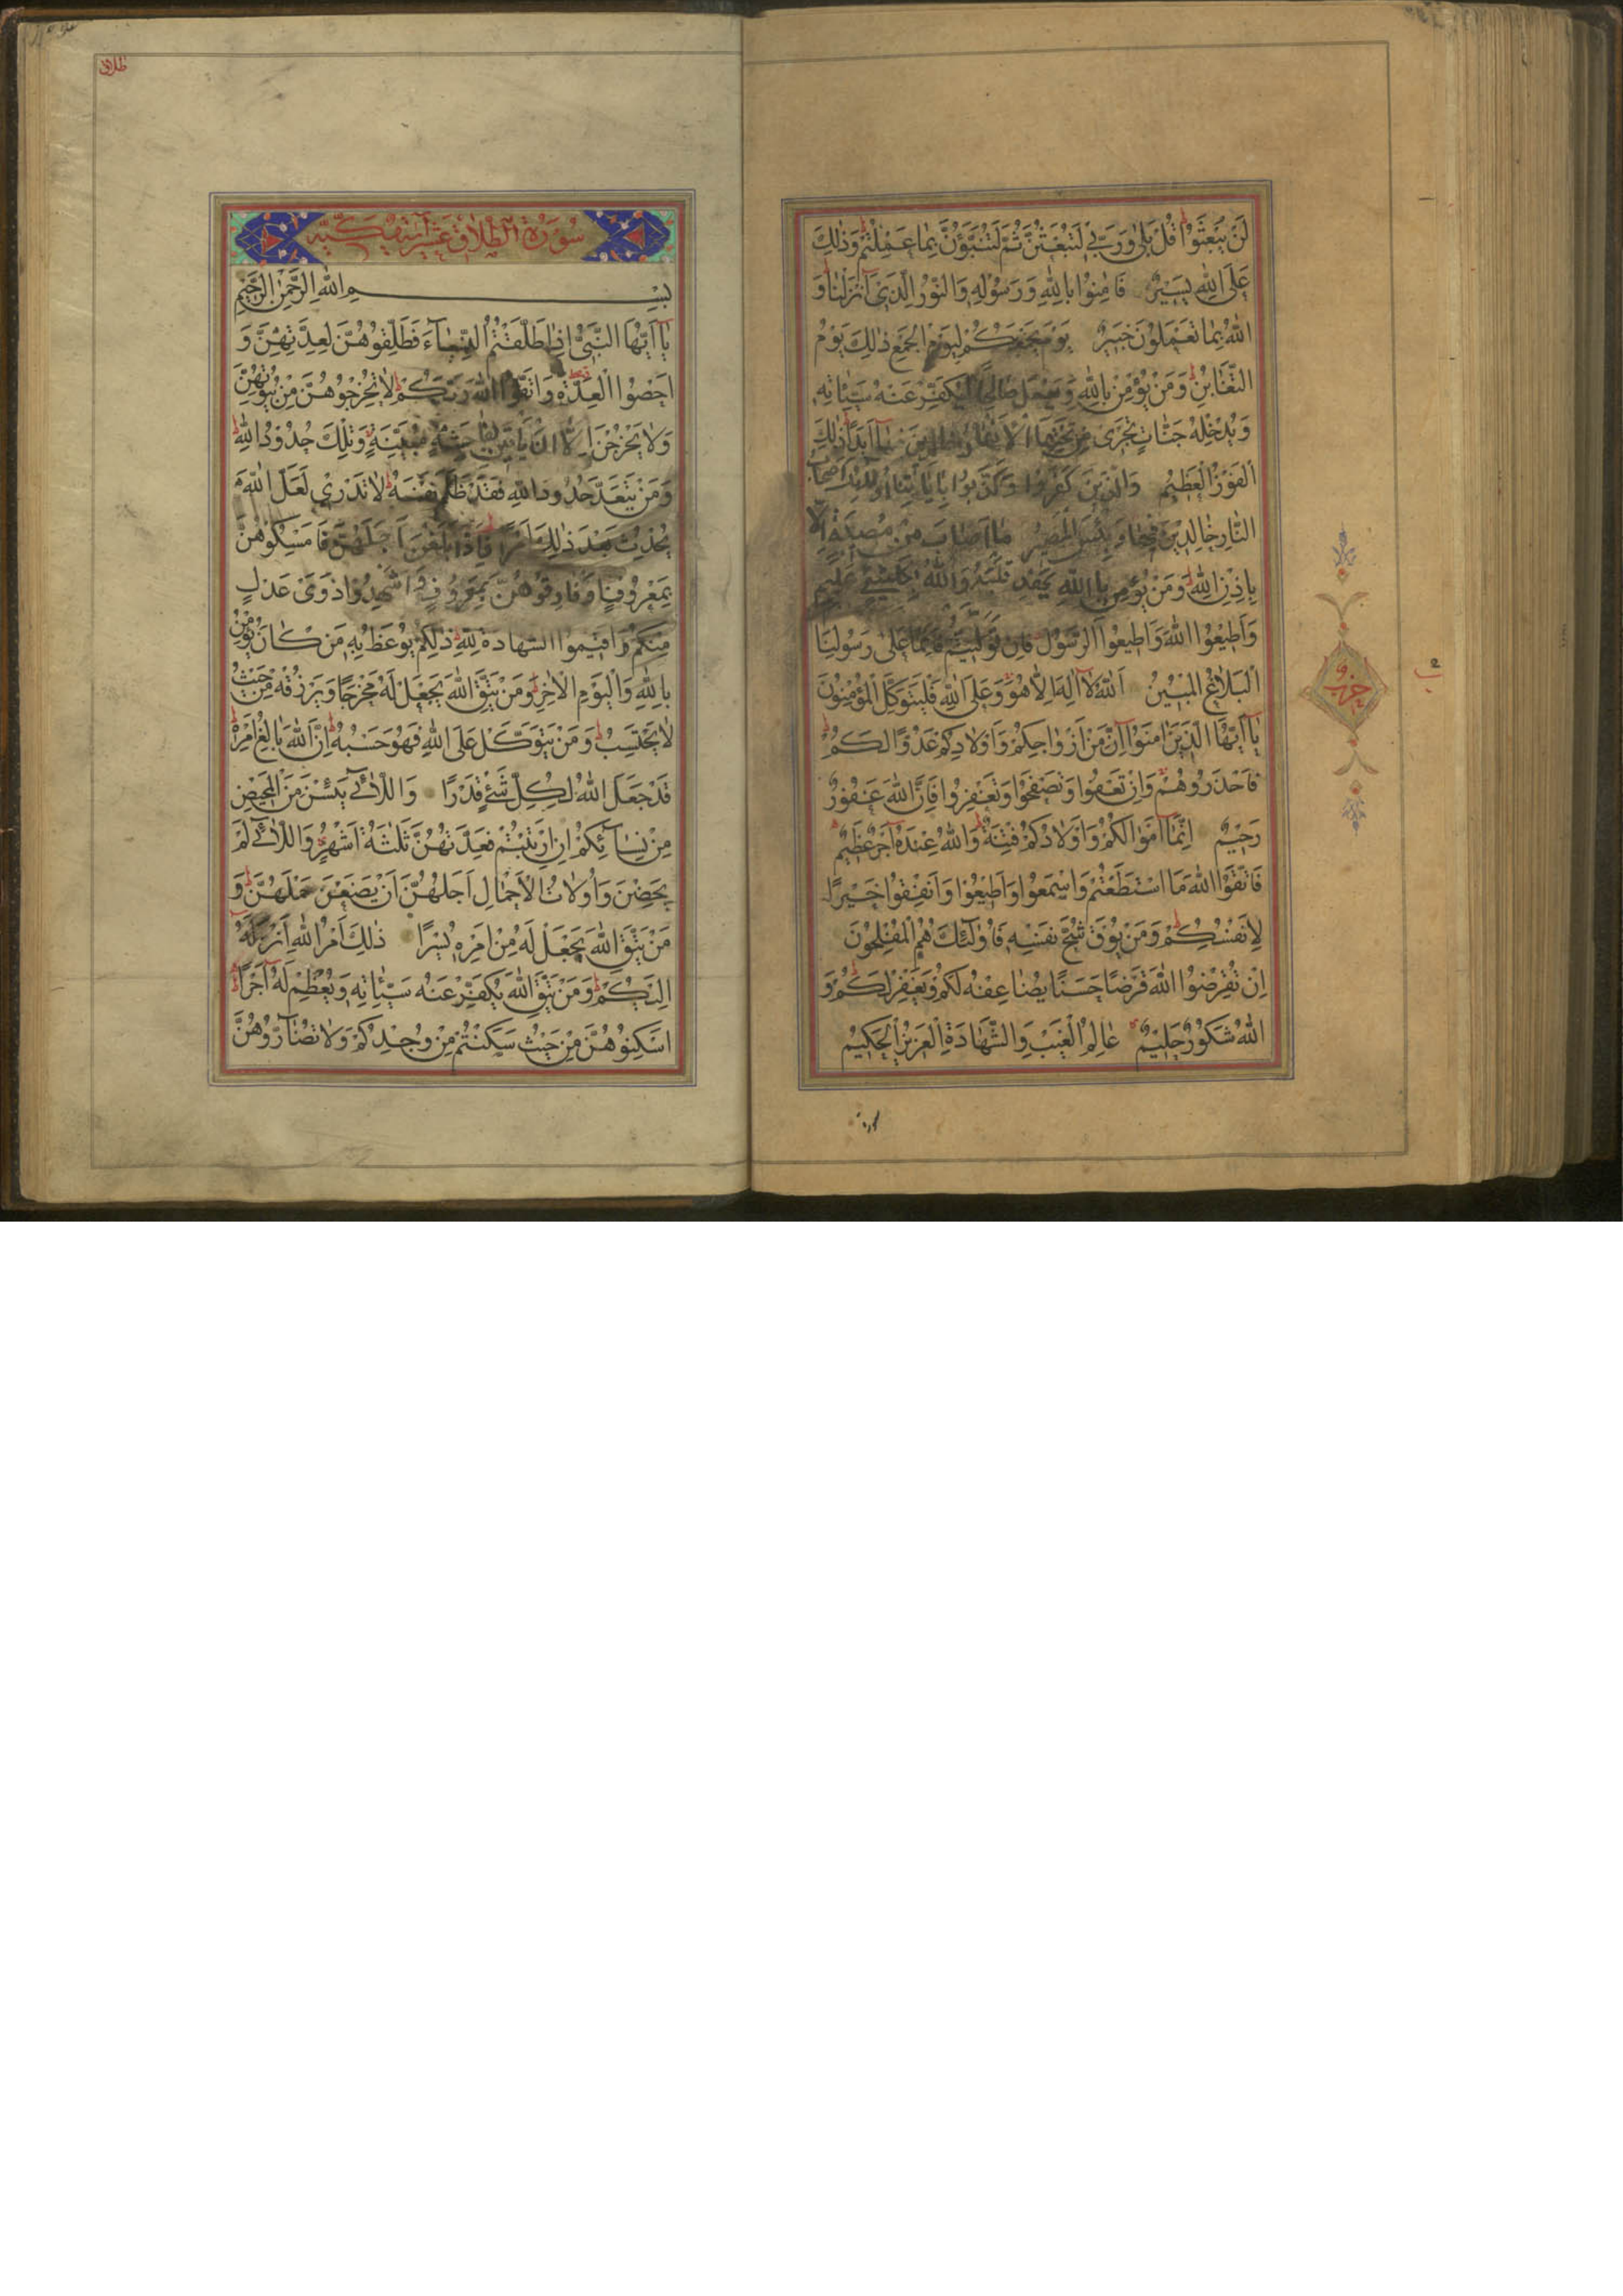 لَنْ يُبْعَثُوا قُلْ بَلٰى وَرَبّي لَتُبْعَثُنَّ ثُمَّ لَتُنَبَّؤُنَّ بِمَا عَمِلْتُمْ وَذٰلِكَ
عَلَى اللّٰهِ يَسِيرٌ فَاٰمِنُوا بِاللّٰهِ وَرَسُولِهِ وَالنُّورِ الَّذِي اَنْزَلْنَا وَ
اللّٰهُ بِمَا تَعْمَلُونَ خَبِيرٌ يَوْمَ يَجْمَعُكُمْ لِيَوْمِ الْجَمْعِ ذٰلِكَ يَوْمُ
التَّغَابُنِ وَمَنْ يُؤْمِنْ بِاللّٰهِ وَيَعْمَلْ صَالِحًا يُكَفِّرْ عَنْهُ سَيِّئَاتِهِ
وَيُدْخِلْهُ جَنَّاتٍ تَجْرِي مِنْ تَحْتِهَا الْاَنْهَارُ خَالِدِينَ فِيهَا اَبَدًا ذٰلِكَ
الْفَوْزُ الْعَظِيمُ وَالَّذِينَ كَفَرُوا وَكَذَّبُوا بِاٰيَاتِنَا اُولٰئِكَ اَصْحَابُ
النَّارِ خَالِدِينَ فِيهَا وَبِئْسَ الْمَصِيرُ مَا اَصَابَ مِنْ مُصِيبَةٍ اِلَّا
بِاِذْنِ اللّٰهِ وَمَنْ يُؤْمِنْ بِاللّٰهِ يَهْدِ قَلْبَهُ وَاللّٰهُ بِكُلِّ شَيْءٍ عَلِيمٌ
وَاَطِيعُوا اللّٰهَ وَاَطِيعُوا الرَّسُولَ فَاِنْ تَوَلَّيْتُمْ فَاِنَّمَا عَلٰى رَسُولِنَا
الْبَلَاغُ الْمُبِينُ اَللّٰهُ لَا اِلٰهَ اِلَّا هُوَ وَعَلَى اللّٰهِ فَلْيَتَوَكَّلِ الْمُؤْمِنُونَ
يَا اَيُّهَا الَّذِينَ اٰمَنُوا اِنَّ مِنْ اَزْوَاجِكُمْ وَاَوْلَادِكُمْ عَدُوًّا لَكُمْ
فَاحْذَرُوهُمْ وَاِنْ تَعْفُوا وَتَصْفَحُوا وَتَغْفِرُوا فَاِنَّ اللّٰهَ غَفُورٌ
رَحِيمٌ اِنَّمَا اَمْوَالُكُمْ وَاَوْلَادُكُمْ فِتْنَةٌ وَاللّٰهُ عِنْدَهُ اَجْرٌ عَظِيمٌ
فَاتَّقُوا اللّٰهَ مَا اسْتَطَعْتُمْ وَاسْمَعُوا وَاَطِيعُوا وَاَنْفِقُوا خَيْرًا
لِاَنْفُسِكُمْ وَمَنْ يُوقَ شُحَّ نَفْسِهِ فَاُولٰئِكَ هُمُ الْمُفْلِحُونَ
اِنْ تُقْرِضُوا اللّٰهَ قَرْضًا حَسَنًا يُضَاعِفْهُ لَكُمْ وَيَغْفِرْ لَكُمْ وَ
اللّٰهُ شَكُورٌ حَلِيمٌ عَالِمُ الْغَيْبِ وَالشَّهَادَةِ الْعَزِيزُ الْحَكِيمُ
حزب
طلاق
سُورَةُ الطَّلَاقِ
بِسْمِ اللّٰهِ الرَّحْمٰنِ الرَّحِيمِ
يَا اَيُّهَا النَّبِيُّ اِذَا طَلَّقْتُمُ النِّسَاءَ فَطَلِّقُوهُنَّ لِعِدَّتِهِنَّ وَ
اَحْصُوا الْعِدَّةَ وَاتَّقُوا اللّٰهَ رَبَّكُمْ لَا تُخْرِجُوهُنَّ مِنْ بُيُوتِهِنَّ
وَلَا يَخْرُجْنَ اِلَّا اَنْ يَأْتِينَ بِفَاحِشَةٍ مُبَيِّنَةٍ وَتِلْكَ حُدُودُ اللّٰهِ
وَمَنْ يَتَعَدَّ حُدُودَ اللّٰهِ فَقَدْ ظَلَمَ نَفْسَهُ لَا تَدْرِي لَعَلَّ اللّٰهَ
يُحْدِثُ بَعْدَ ذٰلِكَ اَمْرًا فَاِذَا بَلَغْنَ اَجَلَهُنَّ فَاَمْسِكُوهُنَّ
بِمَعْرُوفٍ اَوْ فَارِقُوهُنَّ بِمَعْرُوفٍ وَاَشْهِدُوا ذَوَيْ عَدْلٍ
مِنْكُمْ وَاَقِيمُوا الشَّهَادَةَ لِلّٰهِ ذٰلِكُمْ يُوعَظُ بِهِ مَنْ كَانَ يُؤْمِنُ
بِاللّٰهِ وَالْيَوْمِ الْاٰخِرِ وَمَنْ يَتَّقِ اللّٰهَ يَجْعَلْ لَهُ مَخْرَجًا وَيَرْزُقْهُ مِنْ حَيْثُ
لَا يَحْتَسِبُ وَمَنْ يَتَوَكَّلْ عَلَى اللّٰهِ فَهُوَ حَسْبُهُ اِنَّ اللّٰهَ بَالِغُ اَمْرِهِ
قَدْ جَعَلَ اللّٰهُ لِكُلِّ شَيْءٍ قَدْرًا وَاللَّائِي يَئِسْنَ مِنَ الْمَحِيضِ
مِنْ نِسَائِكُمْ اِنِ ارْتَبْتُمْ فَعِدَّتُهُنَّ ثَلٰثَةُ اَشْهُرٍ وَاللَّائِي لَمْ
يَحِضْنَ وَاُولَاتُ الْاَحْمَالِ اَجَلُهُنَّ اَنْ يَضَعْنَ حَمْلَهُنَّ وَ
مَنْ يَتَّقِ اللّٰهَ يَجْعَلْ لَهُ مِنْ اَمْرِهِ يُسْرًا ذٰلِكَ اَمْرُ اللّٰهِ اَنْزَلَهُ
اِلَيْكُمْ وَمَنْ يَتَّقِ اللّٰهَ يُكَفِّرْ عَنْهُ سَيِّئَاتِهِ وَيُعْظِمْ لَهُ اَجْرًا
اَسْكِنُوهُنَّ مِنْ حَيْثُ سَكَنْتُمْ مِنْ وُجْدِكُمْ وَلَا تُضَارُّوهُنَّ